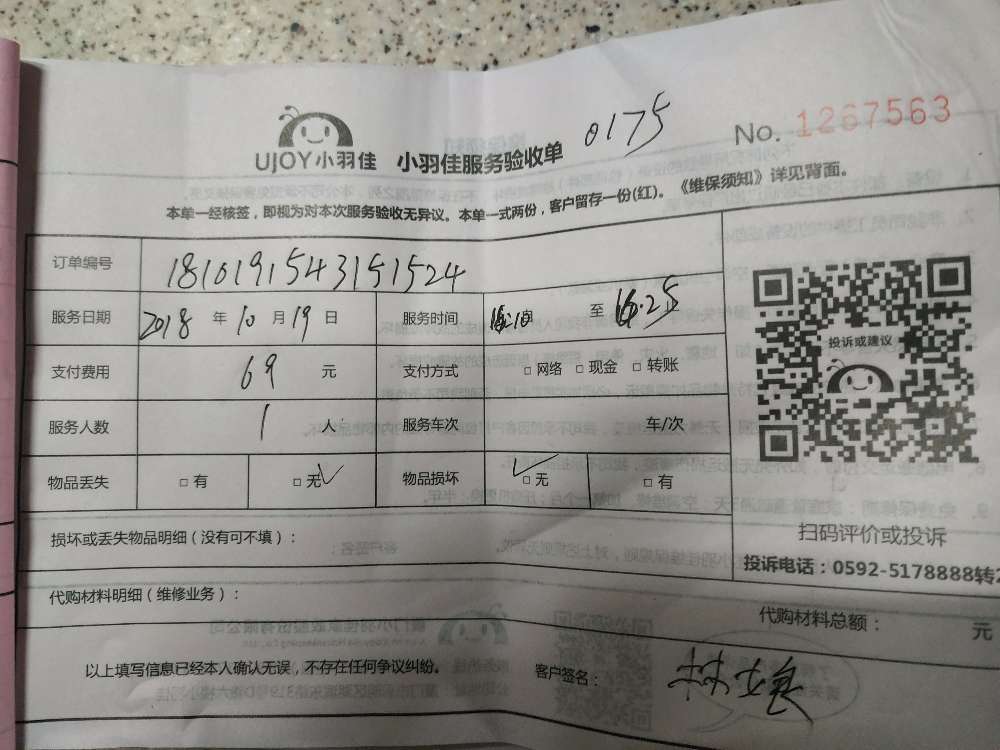 UJOY小羽佳 小羽佳服务验收单 0175 No. 1267563
本单一经核签，即视为对本次服务验收无异议。本单一式两份，客户留存一份(红)。《维保须知》详见背面。
订单编号 1810191543151524
服务日期 2018 年 10 月 19 日 服务时间 至 16:25
支付费用 69 元 支付方式 □ 网络 □ 现金 □ 转账
服务人数 1 人 服务车次 车/次
物品丢失 □ 有 □ 无✓ 物品损坏 □ 无✓ □ 有
投诉或建议
扫码评价或投诉
投诉电话：0592-5178888转2
损坏或丢失物品明细（没有可不填）：
代购材料明细（维修业务）：
代购材料总额： 元
以上填写信息已经本人确认无误，不存在任何争议纠纷。 客户签名： 林